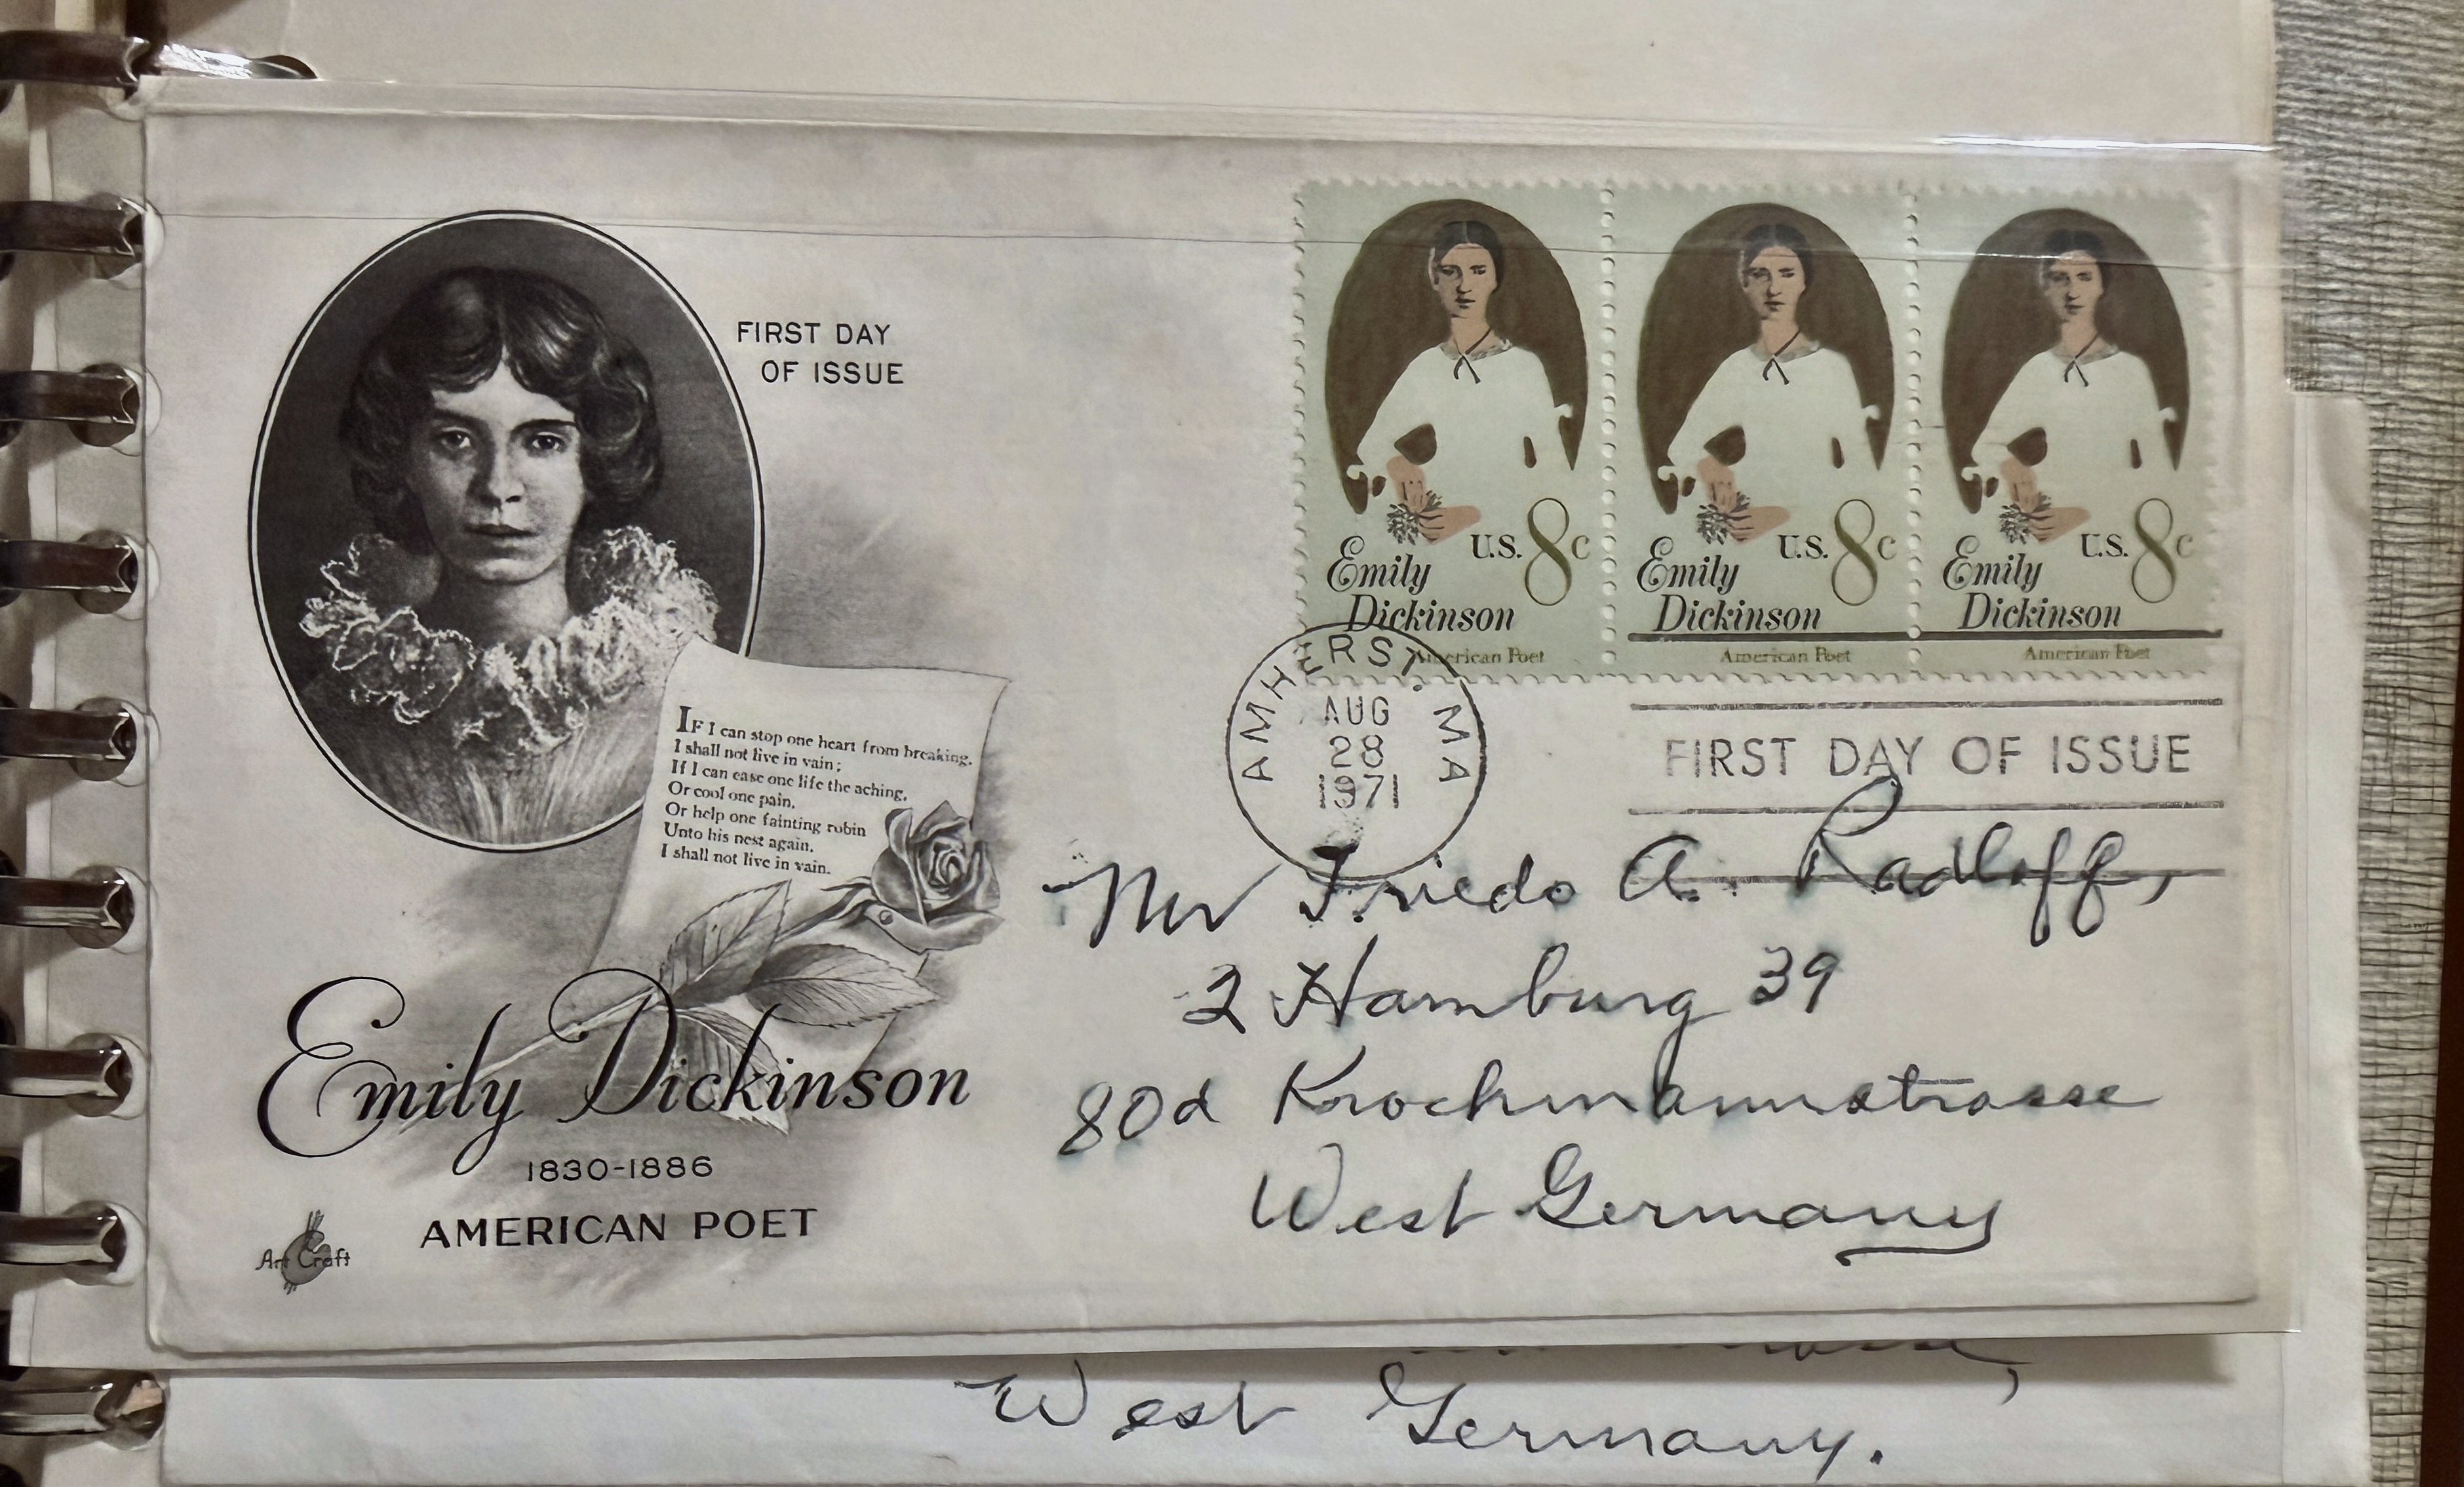 FIRST DAY
OF ISSUE
IF I can stop one heart from breaking,
I shall not live in vain;
If I can ease one life the aching,
Or cool one pain,
Or help one fainting robin
Unto his nest again,
I shall not live in vain.
Emily Dickinson
1830-1886
AMERICAN POET
Art Craft
U.S. 8c
Emily
Dickinson
American Poet
U.S. 8c
Emily
Dickinson
American Poet
U.S. 8c
Emily
Dickinson
American Poet
AMHERST, MA
AUG
28
1971
FIRST DAY OF ISSUE
Mr Friedo A. Radloff,
2 Hamburg 39
80d Krochmannstrasse
West Germany
West Germany.